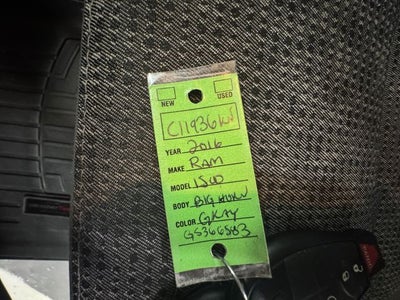 NEW USED
C11936
YEAR 2016
MAKE RAM
MODEL 1500
BODY BIG HORN
COLOR GRAY
GS366583